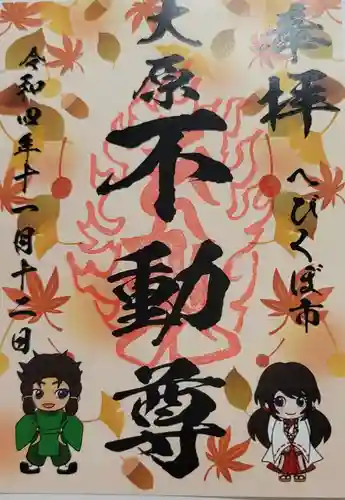 奉拝
へびくぼ市
大原
不動尊
令和四年十一月十二日